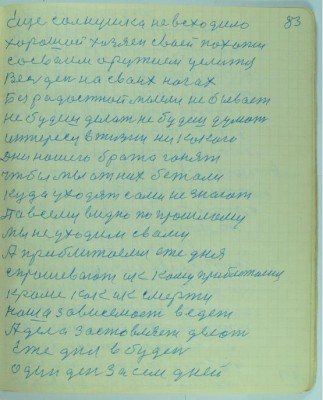 83
Еще солнушка невсходило
хороший хозяен своей похожи
сосвоим оружием целитя
Весь ден на своих ногах
Без радостной мысли не бывает
не будеш делат не будеш думат
интересу в жизни ни какого
Дни нашего брата гонят
чтбы мы от них бежали
Куда уходят сами не знают
Повсему видно по прошлому
мы не уходим с вами
А приближаеми еже дня
спрошевают ик кому приближаеми
Кроме как ик смерти
наша зависемост ведет
А дела застовляет делат
Еже дня в будеи
один ден за сем дней